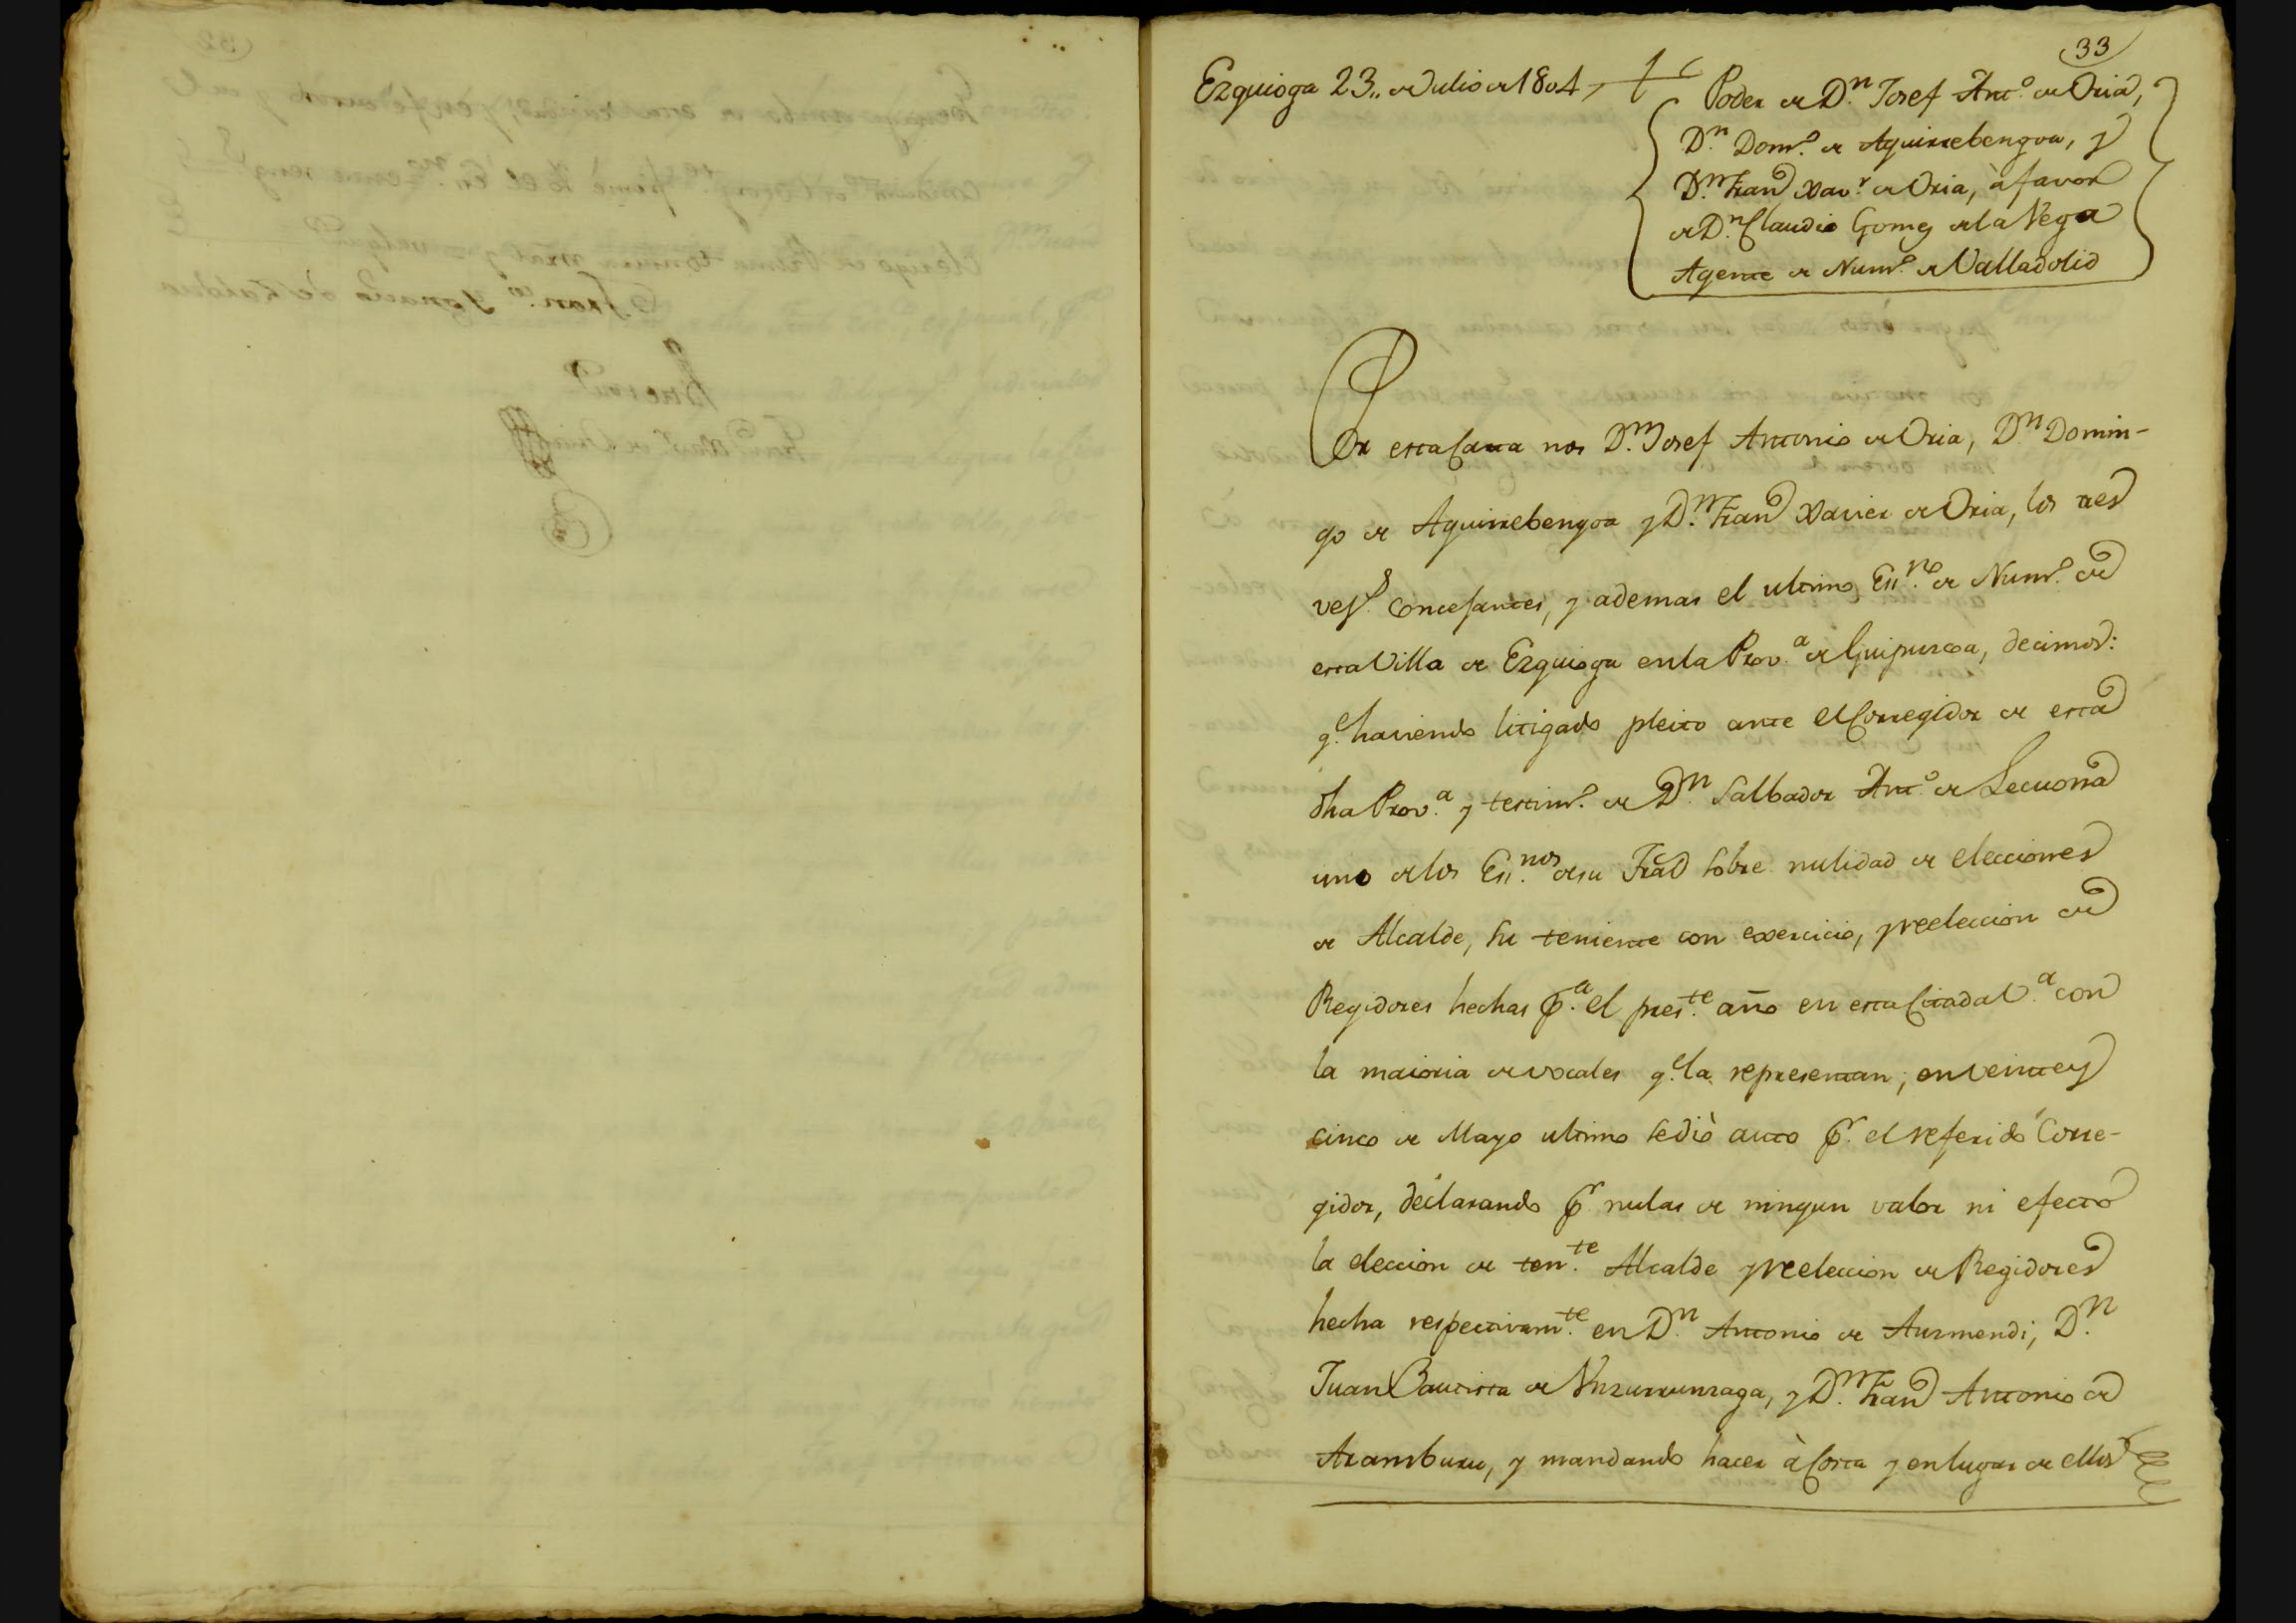 33
Ezquioga 23,, de Julio de 1804
Poder de D.n Josef Ant.o de Oria,
D.n Dom.o de Aguirrebengoa, y
D.n Fran.co Xav.r de Oria, à favor
de D.n Claudio Gomez de la Vega
Agente de Num.o de Valladolid
Por esta Carta nos D.n Josef Antonio de Oria, D.n Domin-
go de Aguirrebengoa y D.n Fran.co Xavier de Oria, los tres
vez.s Concejantes, y ademas el ultimo Ess.no de Num.o de
esta Villa de Ezquioga en la Prov.a de Guipuzcoa, decimos:
q.e haviendo litigado pleito ante el Corregidor de esta
dha Prov.a y testim.o de D.n Salbador Ant.o de Lecuona
uno de los Ess.nos de su Trăl sobre nulidad de elecciones
de Alcalde, su teniente con exercicio, y reeleccion de
Regidores hechas p.a el pres.te año en esta Citada V.a con
la maioria de vocales q.e la representan; en veinte y
cinco de Mayo ultimo se diò auto p.r el referido Corre-
gidor, declarando p.r nulas de ningun valor ni efecto
la eleccion de ten.te Alcalde y reeleccion de Regidores
hecha respectivam.te en D.n Antonio de Aurmendi, D.n
Juan Bautista de Unzurrunzaga, y D.n Fran.co Antonio de
Aramburu, y mandando hacer à Costa y en lugar de ellos